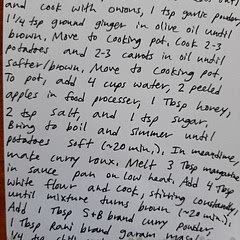 and cook with onions, 1 tsp garlic powder
1 1/4 tsp ground ginger in olive oil until
brown. Move to cooking pot. Cook 2-3
potatoes and 2-3 carrots in oil until
softer/brown. Move to cooking pot.
To pot, add 4 cups water, 2 peeled
apples in food processer, 1 Tbsp honey,
2 tsp salt, and 1 tsp sugar.
Bring to boil and simmer until
potatoes soft (~20 min.). In meantime,
make curry roux. Melt 3 Tbsp margarine
in sauce pan on low heat. Add 4 Tbsp
white flour and cook, stirring constantly,
until mixture turns brown (~20 min.).
Add 1 Tbsp S+B brand curry powder,
1 Tbsp Rani brand garam masala
1/4 tsp